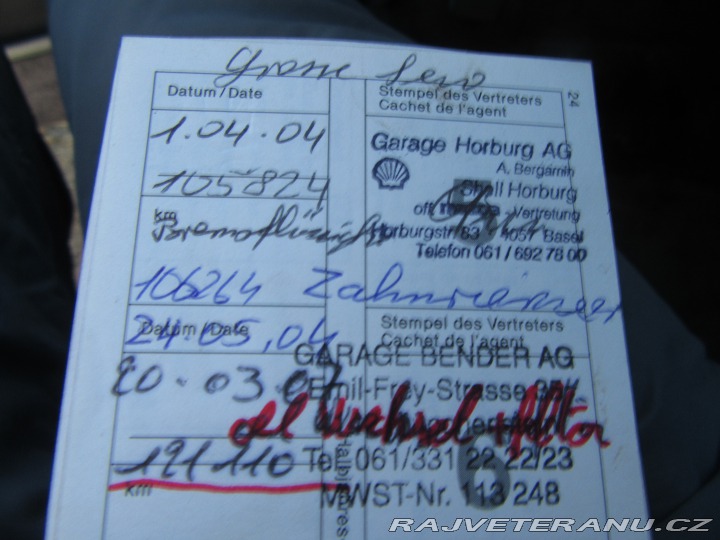 Grosse Serv
24
Datum / Date
Stempel des Vertreters
Cachet de l'agent
1.04.04
Garage Horburg AG
A. Bergamin
Shell Horburg
105824
off. - Vertretung
km
Bremsflüssigk
Horburgstr. 83 - 4057 Basel
Telefon 061 / 692 78 00
106264 Zahnriemen
Datum / Date
24.05.04
Stempel des Vertreters
Cachet de l'agent
GARAGE BENDER AG
20.03.07
Emil-Frey-Strasse
oel Wechsel + filter
121110
Tel. 061/331 22 22/23
km
MWST-Nr. 113 248
RAJVETERANU.CZ